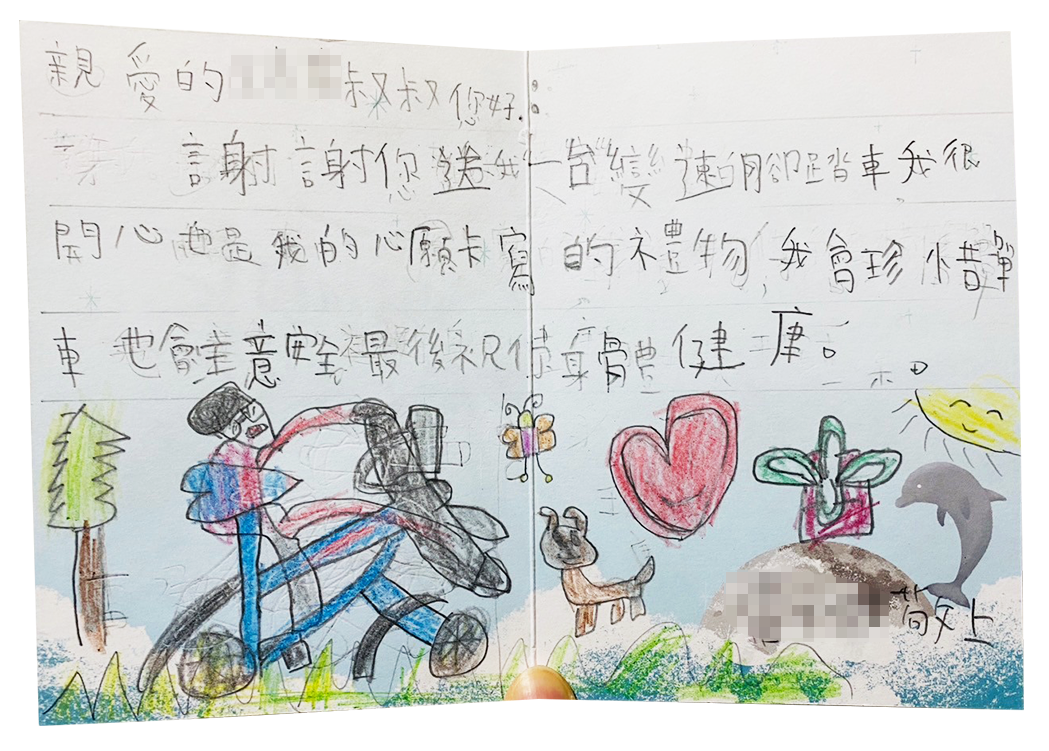 親愛的 叔叔您好.
謝謝您送我一台變速自腳踏車我很
開心也是我的心願卡寫的禮物,我會珍惜單
車也會注意安全最後祝你身體健康。
敬上